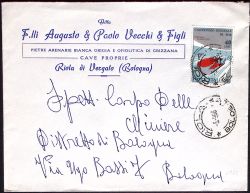 Ditta
F.lli Augusto & Paolo Vecchi & Figli
PIETRE ARENARIE BIANCA GRIGIA E OFIOLITICA DI GRIZZANA
CAVE PROPRIE
Riola di Vergato (Bologna)
Spett. Corpo Delle
Miniere
Distretto di Bologna
Via Ugo Bassi 7
Bologna